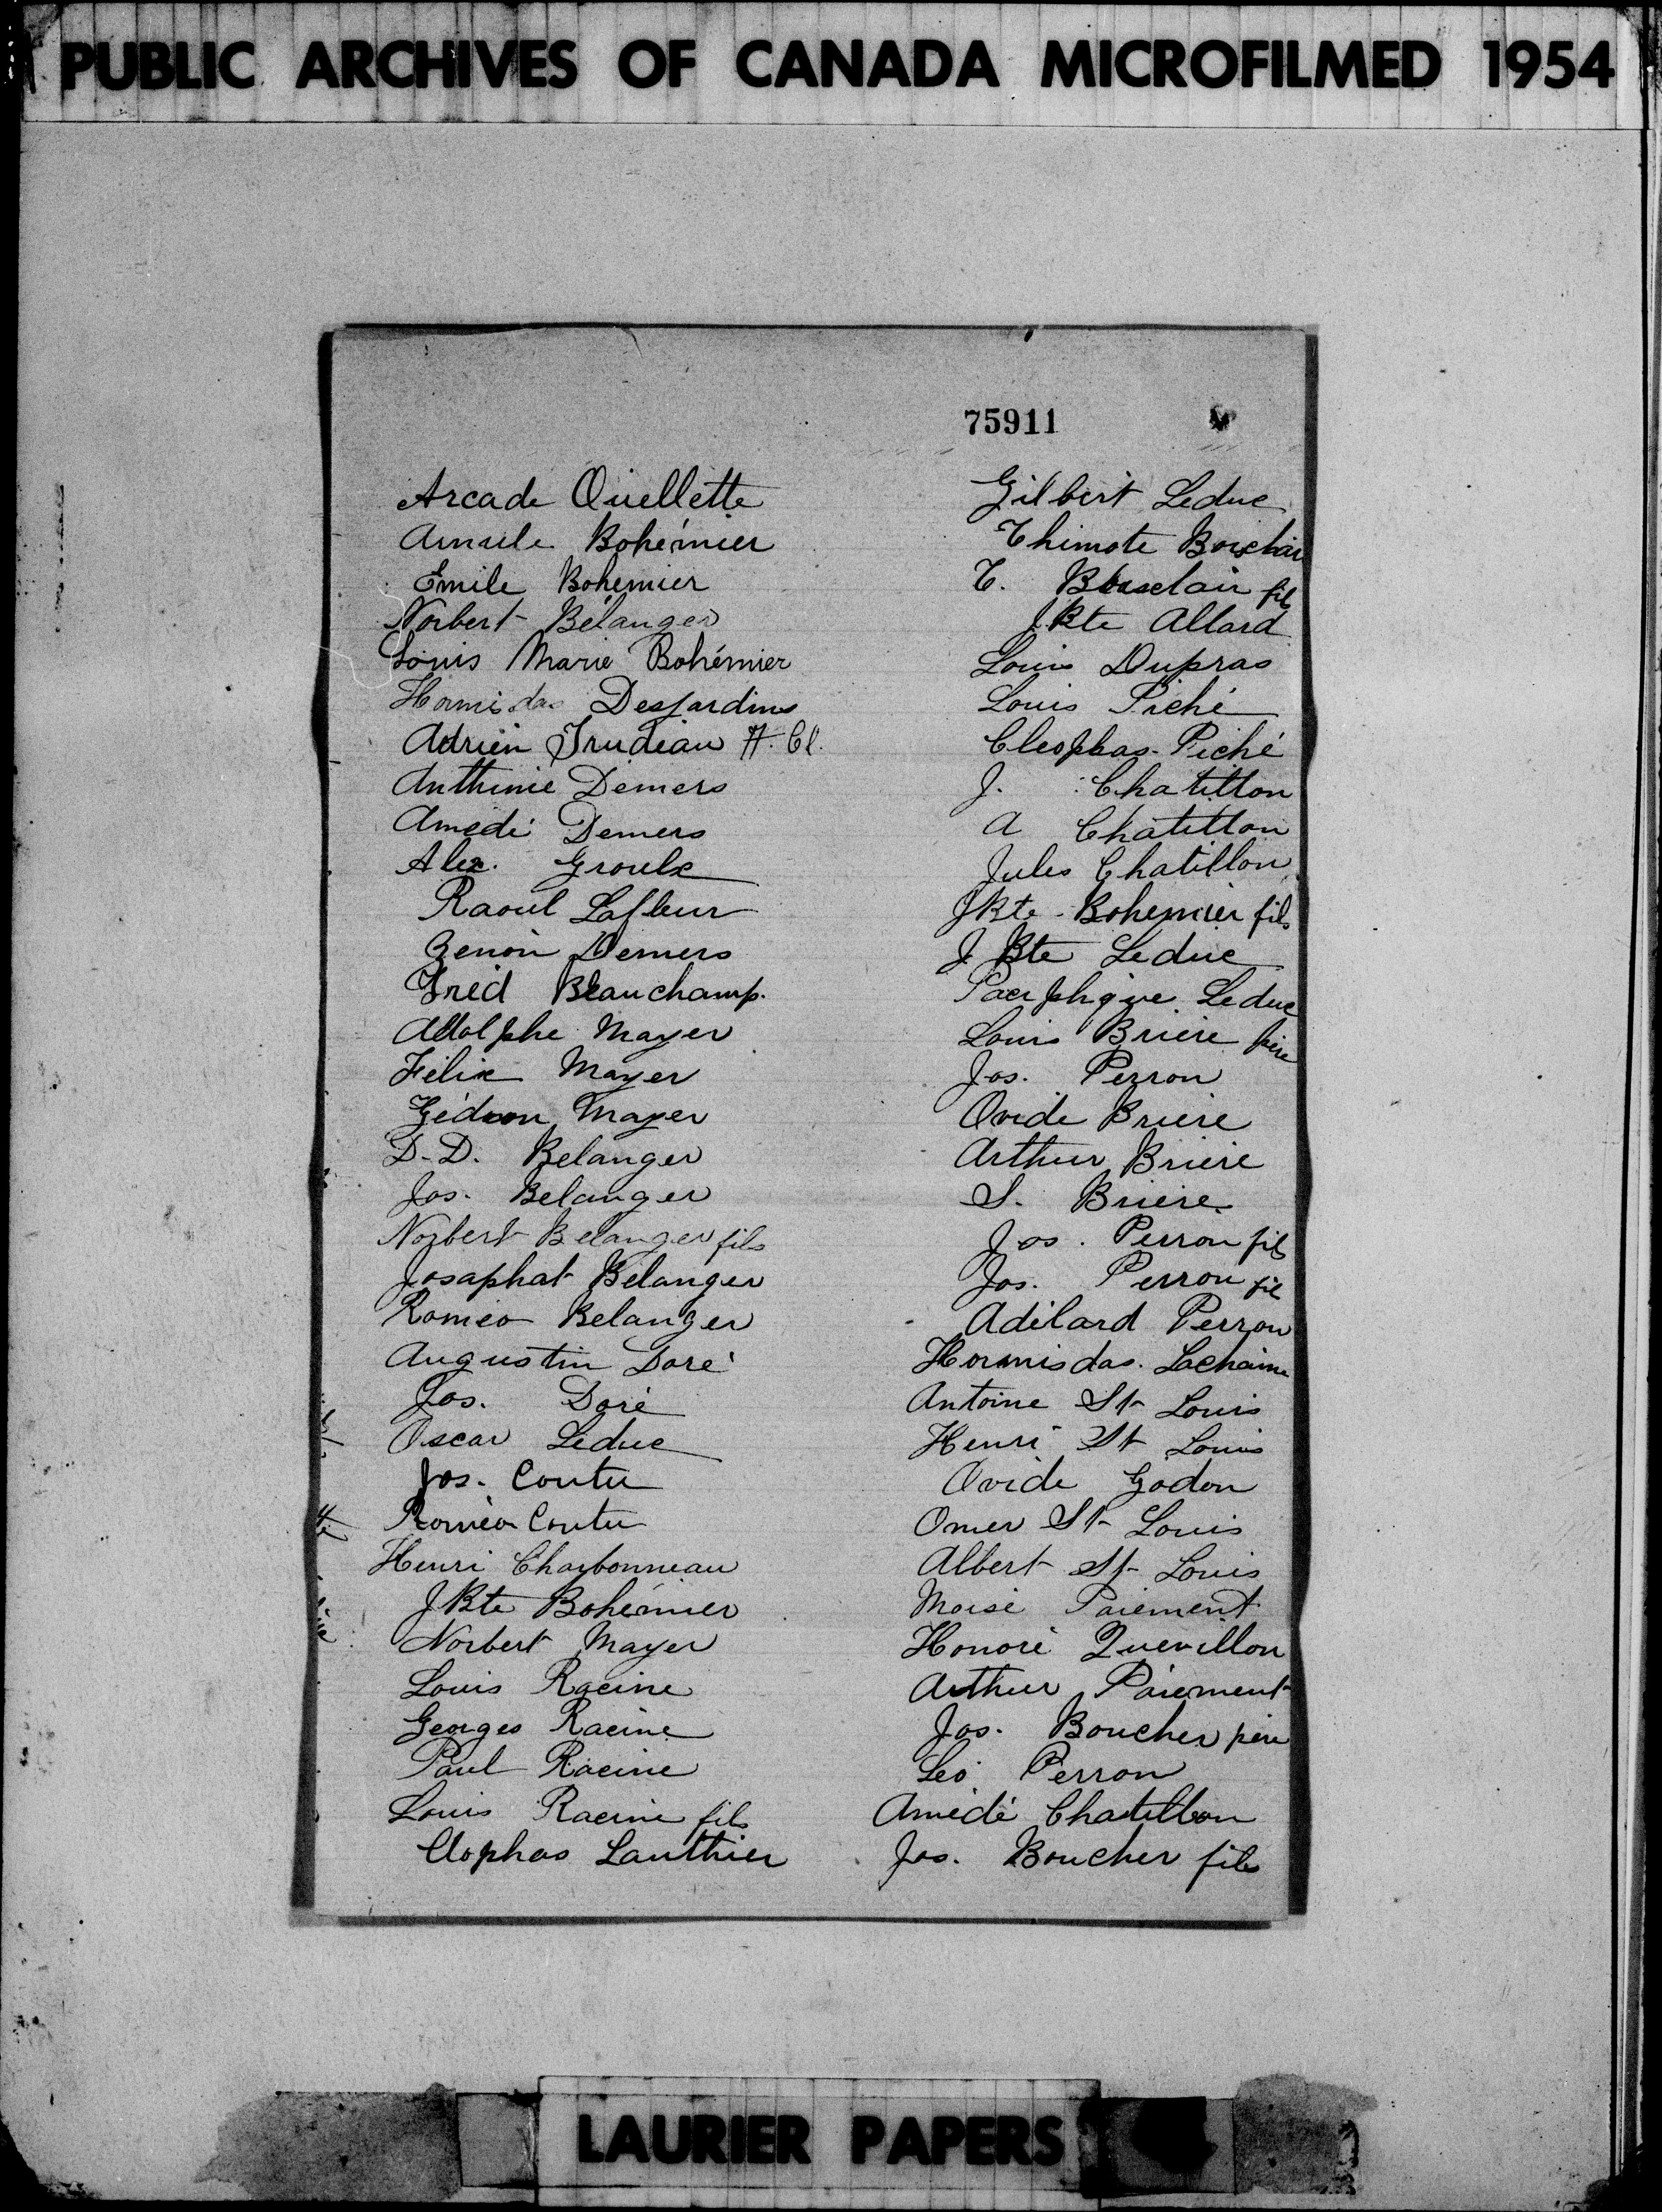 PUBLIC ARCHIVES OF CANADA MICROFILMED 1954
75911
Arcade Ouellette
Bohémier
Emile Bohemier
Norbert Bélanger
Louis Marie Bohémier
Hormisdas Desjardins
Adrien Trudeau
Anthime Demers
Amedé Demers
Alex. Groulx
Raoul Lafleur
Zenon Demers
Fred Beauchamp.
Adolphe Mayer
Felix Mayer
Gédeon Mayer
D-D. Belanger
Jos. Belanger
Norbert Belanger fils
Josaphat Belanger
Romeo Belanger
Augustin Doré
Jos. Doré
Oscar Leduc
Jos. Coutu
Roméo Coutu
Henri Charbonneau
JBte Bohémier
Norbert Mayer
Louis Racine
Georges Racine
Paul Racine
Louis Racine fils
Clophas Lauthier
Gilbert Leduc
Thimote
T. fils
JBte Allard
Louis Dupras
Louis Piché
Cleophas Piché
J. Chatillon
A Chatillon
Jules Chatillon
JBte Bohemier fils
J Bte Leduc
Leduc
Louis Briere père
Jos. Perron
Ovide Briere
Arthur Briere
S. Briere
Jos. Perron fils
Jos. Perron fils
Adélard Perron
Hormisdas Lachaine
Antoine St Louis
Henri St Louis
Ovide Godon
Omer St Louis
Albert St Louis
Moise Paiement
Honoré Quevillon
Arthur Paiement
Jos. Boucher père
Leo Perron
Amédé Chatillon
Jos. Boucher fils
LAURIER PAPERS